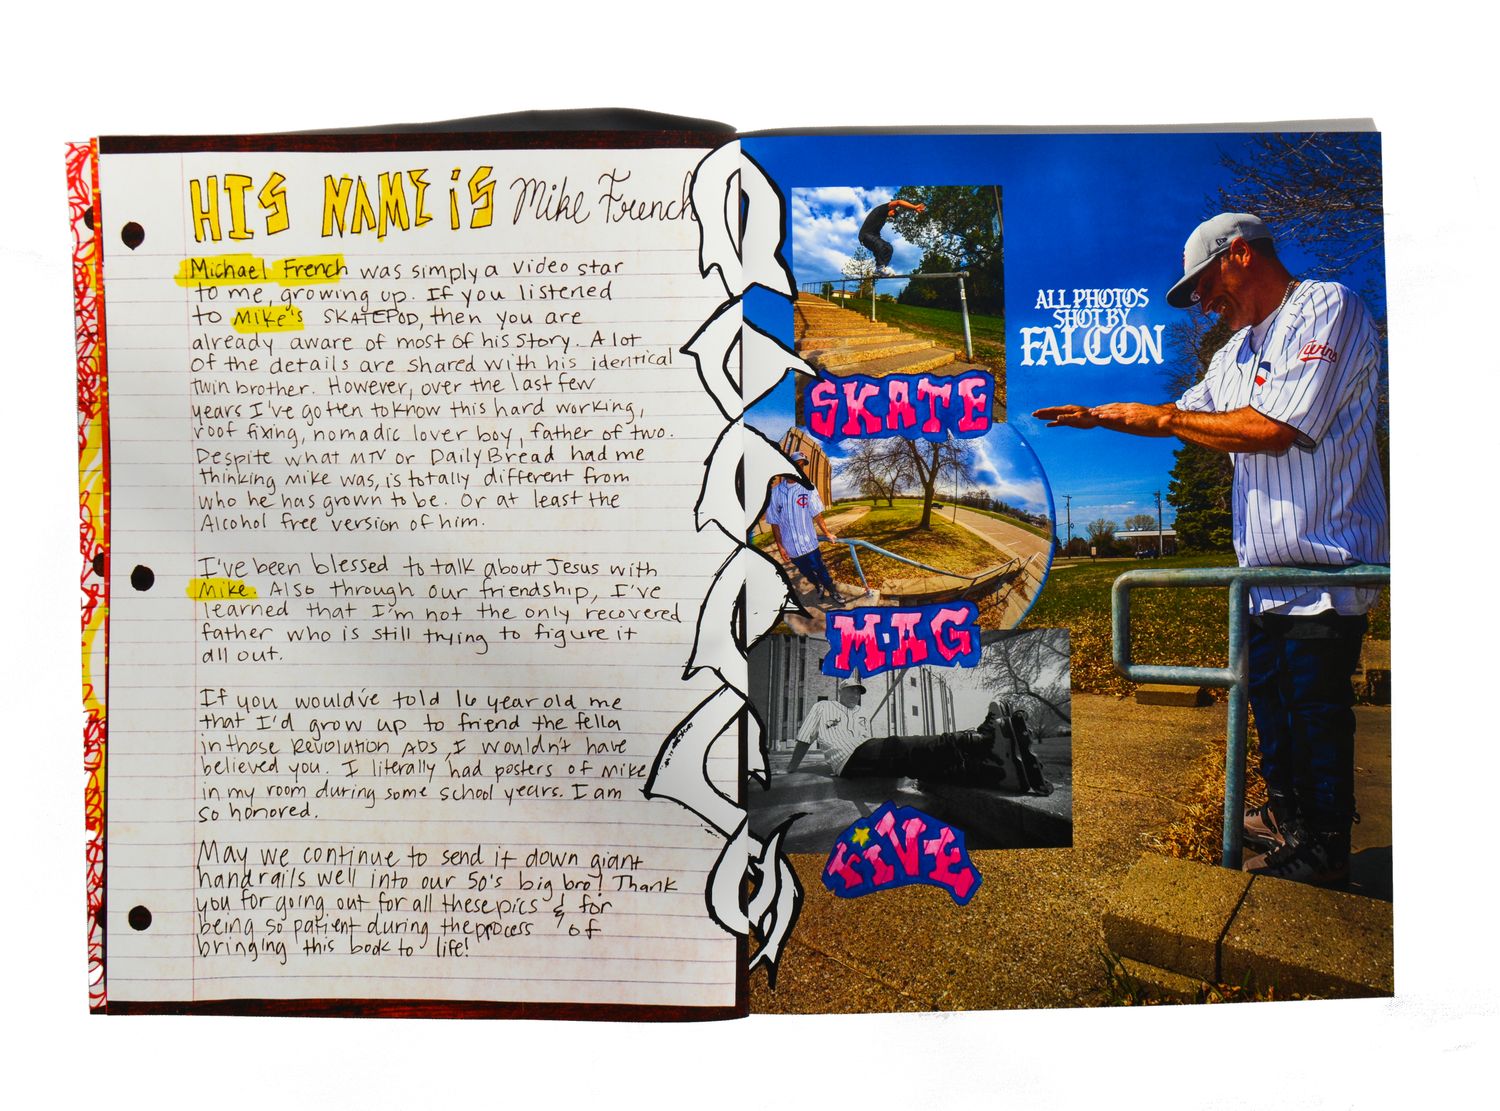 HIS NAME iS Mike French
Michael French was simply a video star
to me, growing up. If you listened
to Mike's SKATEPOD, then you are
already aware of most of his story. A lot
of the details are shared with his identical
twin brother. However, over the last few
years I've gotten to know this hard working,
roof fixing, nomadic lover boy, father of two.
Despite what MTV or Daily Bread had me
thinking Mike was, is totally different from
who he has grown to be. Or at least the
Alcohol free version of him.
I've been blessed to talk about Jesus with
Mike. Also through our friendship, I've
learned that I'm not the only recovered
father who is still trying to figure it
all out.
If you would've told 16 year old me
that I'd grow up to friend the fella
in those Revolution ADS, I wouldn't have
believed you. I literally had posters of Mike
in my room during some school years. I am
so honored.
May we continue to send it down giant
handrails well into our 50's big bro! Thank
you for going out for all these pics & for
being so patient during the process & of
bringing this book to life!
ALL PHOTOS
SHOT BY
FALCON
SKATE
MAG
FiVE
Twins
TC